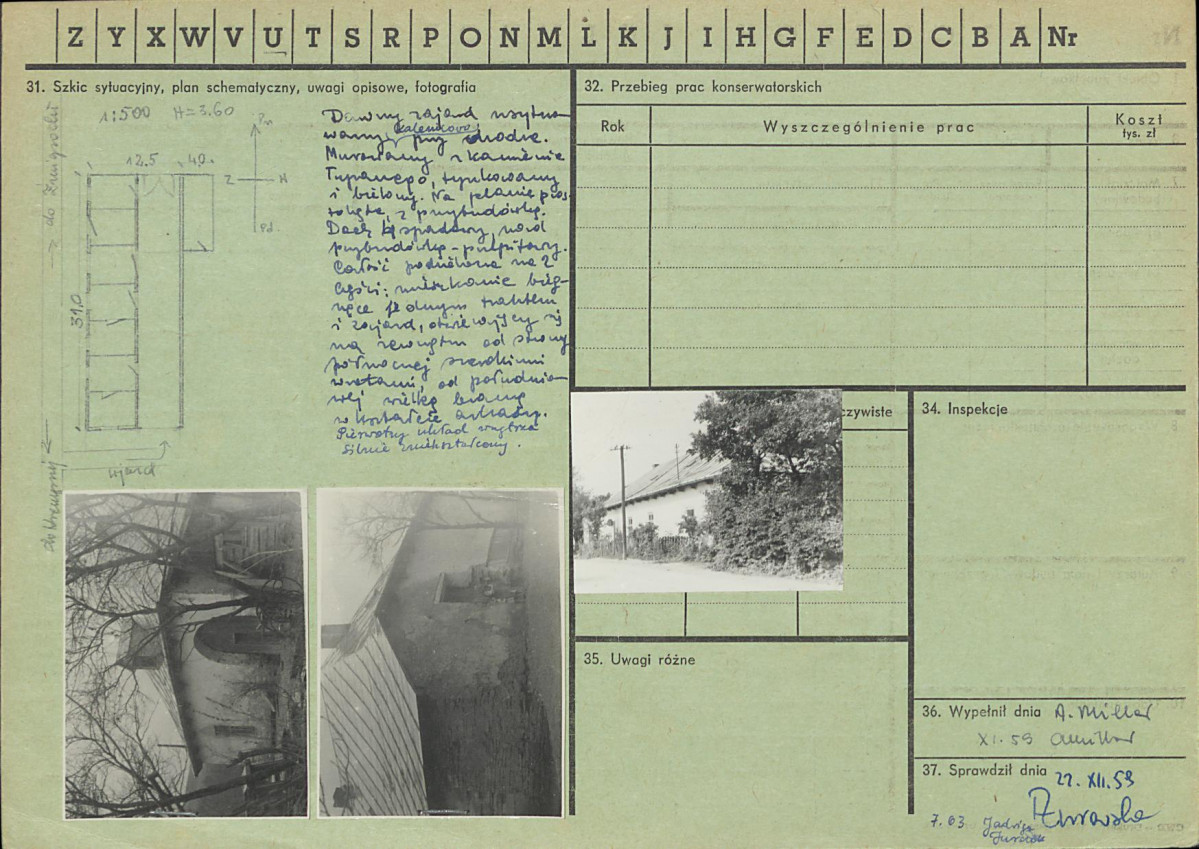 Z Y X W V U T S R P O N M Ł K J I H G F E D C B A Nr
31. Szkic sytuacyjny, plan schematyczny, uwagi opisowe, fotografia
1:500 H=3.60
Pn
12.5 4.0
Z
Pd.
31.0
wjazd
Dawny zajazd usytuo-
wany przy drodze.
Murowany z kamienia
łypanego, tynkowany
i bielony. Na planie pros-
tokąta, z przybudówką.
Dach spadowy, nad
przybudówką - pulpitowy.
Całość podzielona na 2
części: mieszkanie bieg-
nące jednym traktem
i zajazd, otwierający się
na zewnątrz od strony
północnej szerokimi
wrotami, od południo-
wej wielką bramą
w kształcie arkady.
Pierwotny układ wnętrza
silnie zniekształcony.
32. Przebieg prac konserwatorskich
Rok Wyszczególnienie prac Koszt
tys. zł
czywiste
34. Inspekcje
35. Uwagi różne
36. Wypełnił dnia A. Miller
XI. 59
37. Sprawdził dnia 22. XII. 59
7. 63 Jadwiga